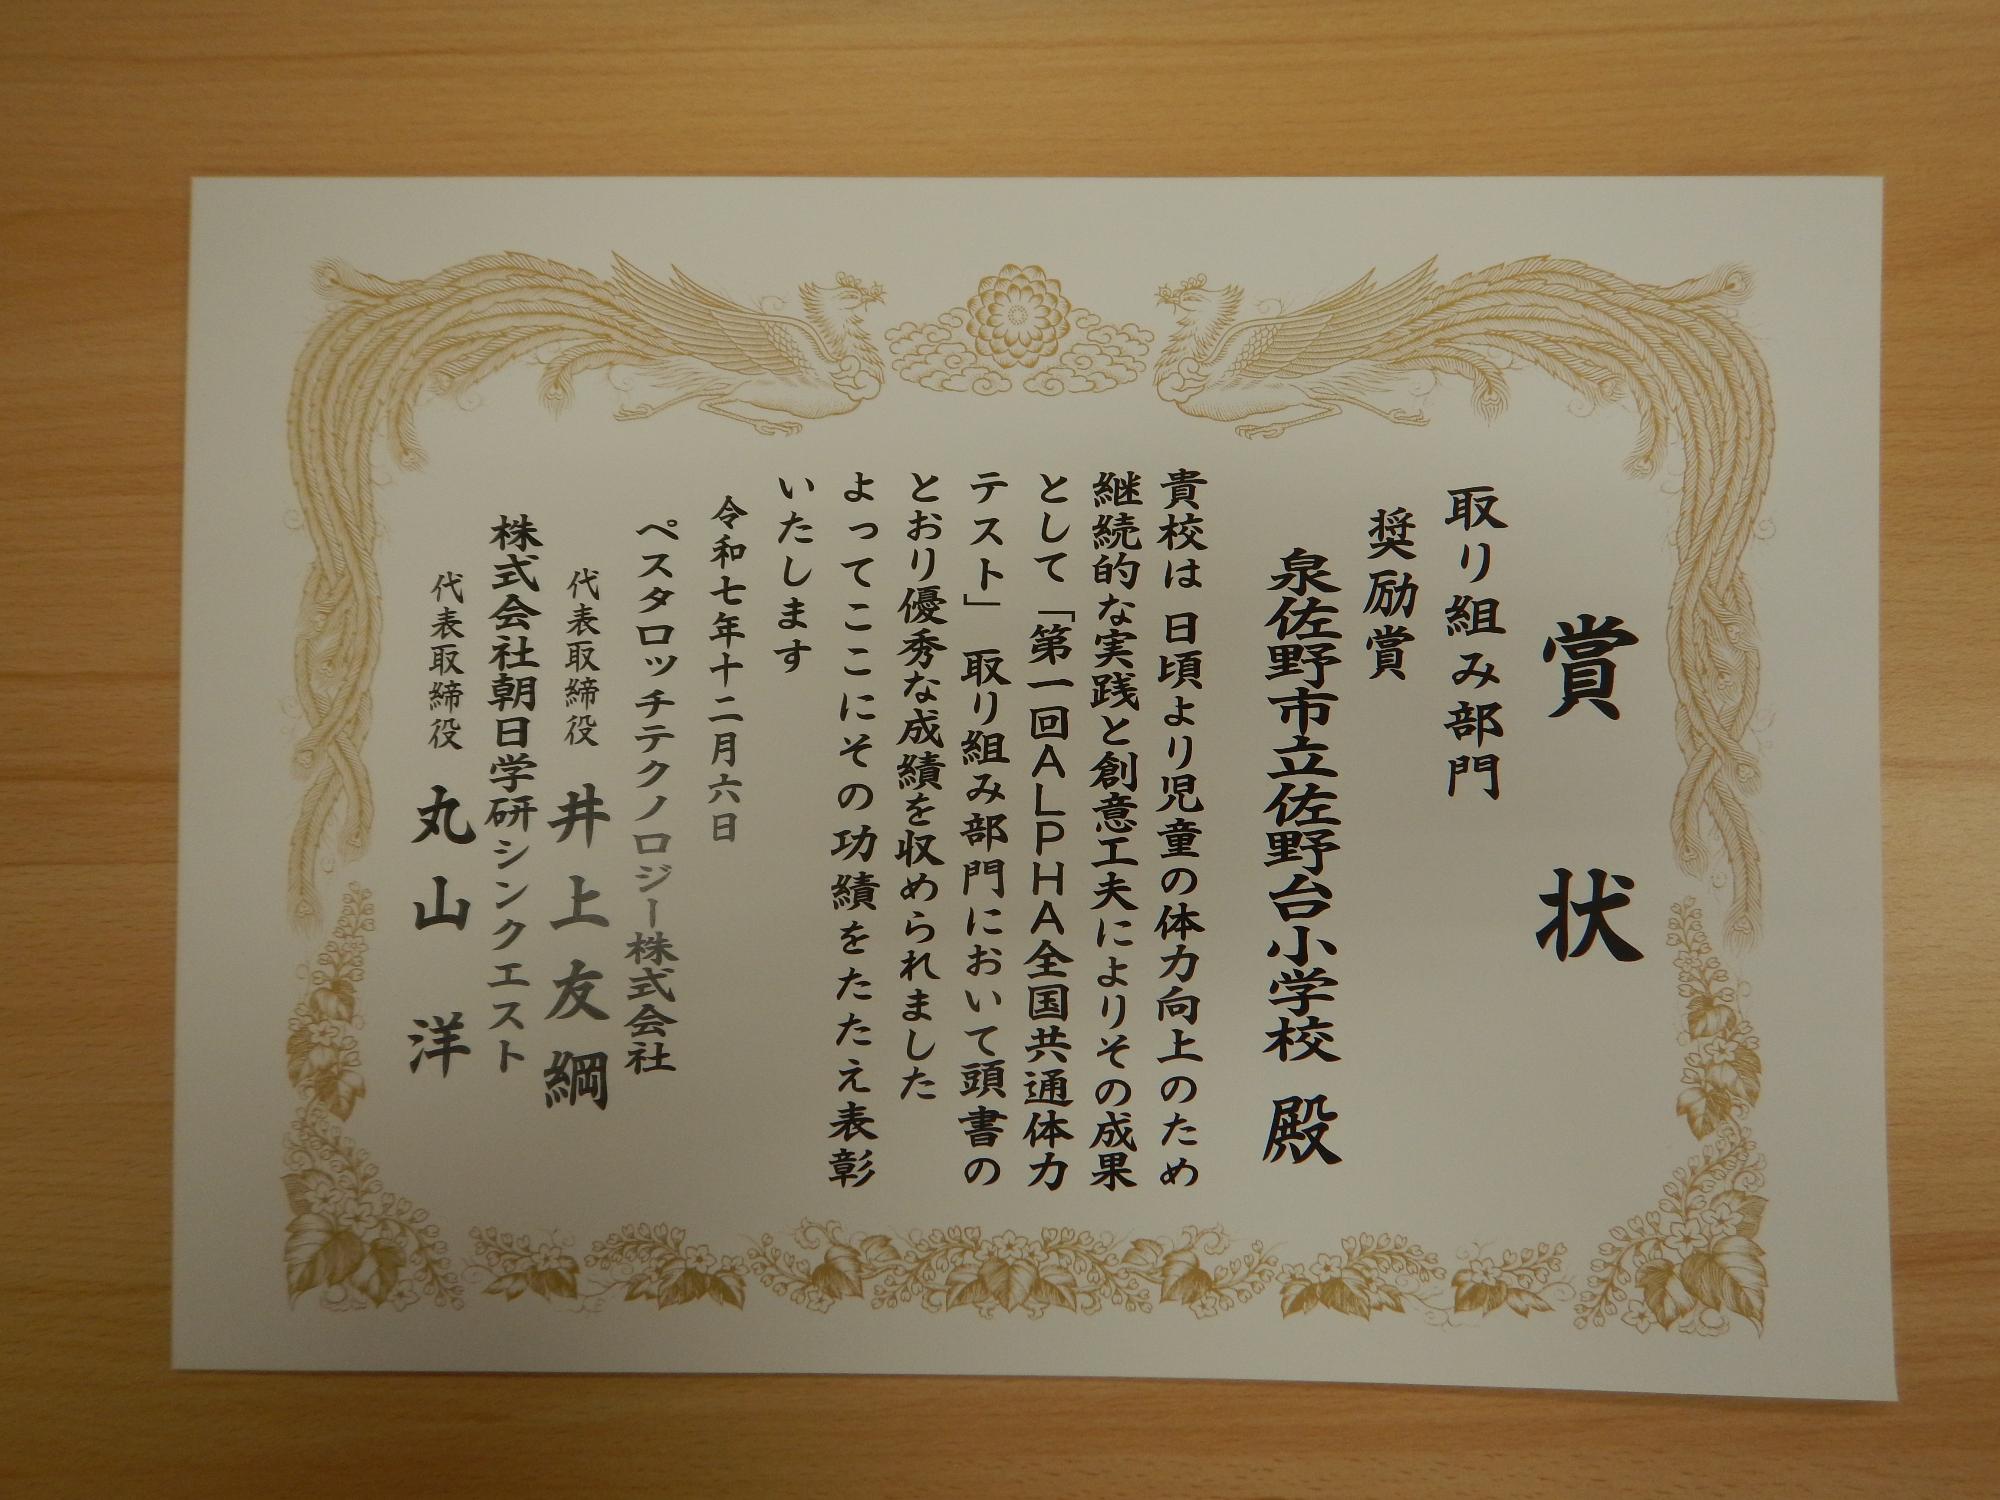 賞状
取り組み部門
奨励賞
泉佐野市立佐野台小学校 殿
貴校は 日頃より児童の体力向上のため
継続的な実践と創意工夫によりその成果
として「第一回ALPHA全国共通体力
テスト」 取り組み部門において頭書の
とおり優秀な成績を収められました
よってここにその功績をたたえ表彰
いたします
令和七年十二月六日
ペスタロッチテクノロジー株式会社
代表取締役 井上友綱
株式会社朝日学研シンクエスト
代表取締役 丸山 洋